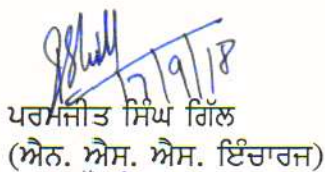 7/9/18
ਪਰਮਜੀਤ ਸਿੰਘ ਗਿੱਲ
(ਐਨ. ਐਸ. ਐਸ. ਇੰਚਾਰਜ)